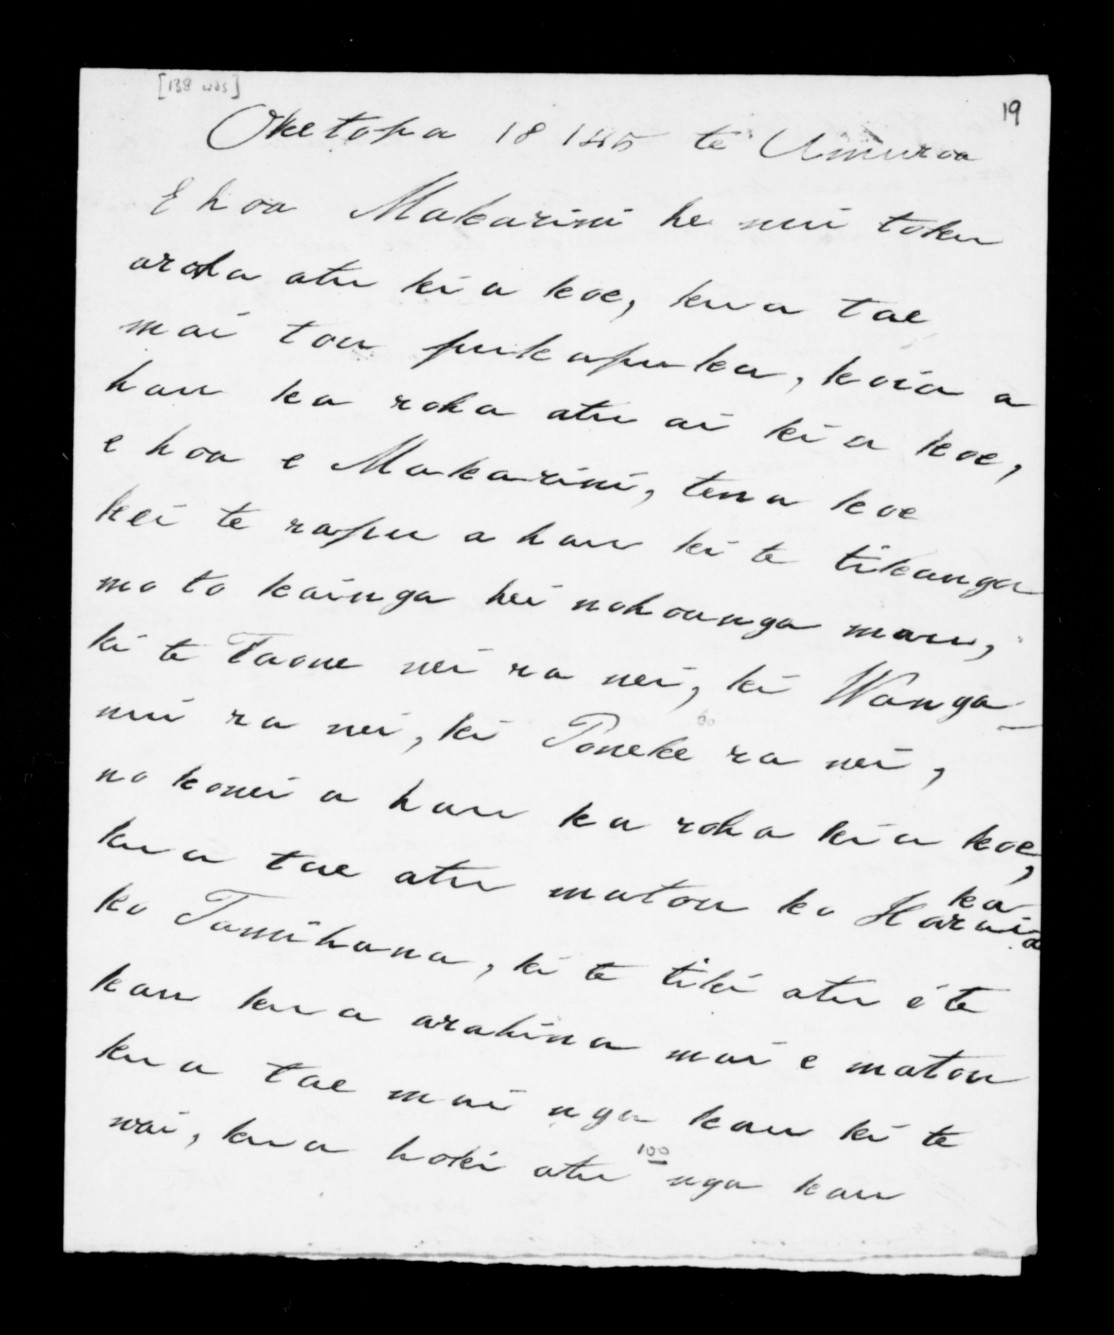 [138 wds]
19
Oketopa 18 1845 te Umuroa
E hoa Makarini he nui toku
aroha atu ki a koe, kua tae
mai tou pukapuka, koia a
hau ka roha atu ai ki a koe,
e hoa e Makarini, tena koe
kei te rapu a hau ki te tikanga
mo to kainga hei nohoanga mau,
ki te Taone nei ra nei, ki Wanga-
nui ra nei, ki Poneke ra nei,
no konei a hau ka roha ki a koe,
ka
kua tae atu matou ko Haraia
ko Tamihana, ki te tiki atu i te
kau kua arahina mai e matou
kua tae mai nga kau ki te
wai, kua hoki atu nga kau
100